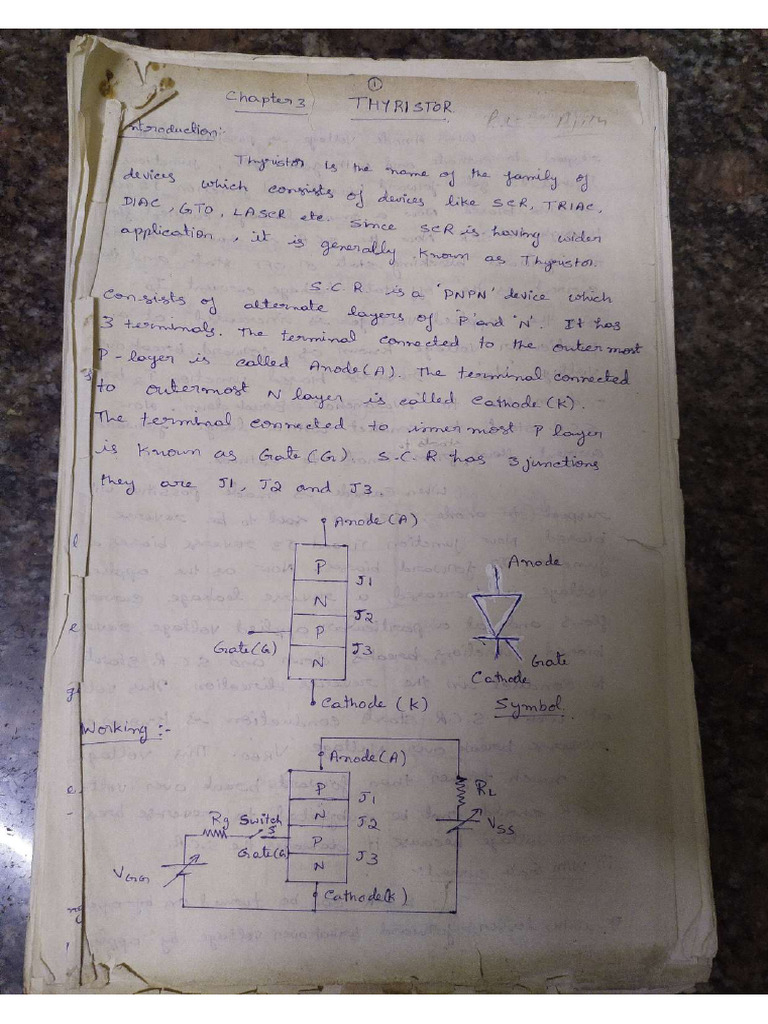 1
Chapter 3 THYRISTOR
Introduction:-
Thyristor is the name of the family of
devices which consists of devices like SCR, TRIAC,
DIAC, GTO, LASCR etc. Since SCR is having wider
application, it is generally known as Thyristor.
S.C.R. is a 'PNPN' device which
consists of alternate layers of 'P' and 'N'. It has
3 terminals. The terminal connected to the outermost
P-layer is called Anode(A). The terminal connected
to outermost N layer is called Cathode(K).
The terminal connected to inner most P layer
is known as Gate(G). S.C.R has 3 junctions
they are J1, J2 and J3.
Anode(A)
P
J1
N
J2
P
J3
N
Gate(G)
Cathode (K)
Anode
Gate
Cathode
Symbol.
Working:-
Anode(A)
P
J1
N
J2
P
J3
N
Rg Switch
S
Gate(G)
VGG
Cathode(K)
RL
VSS